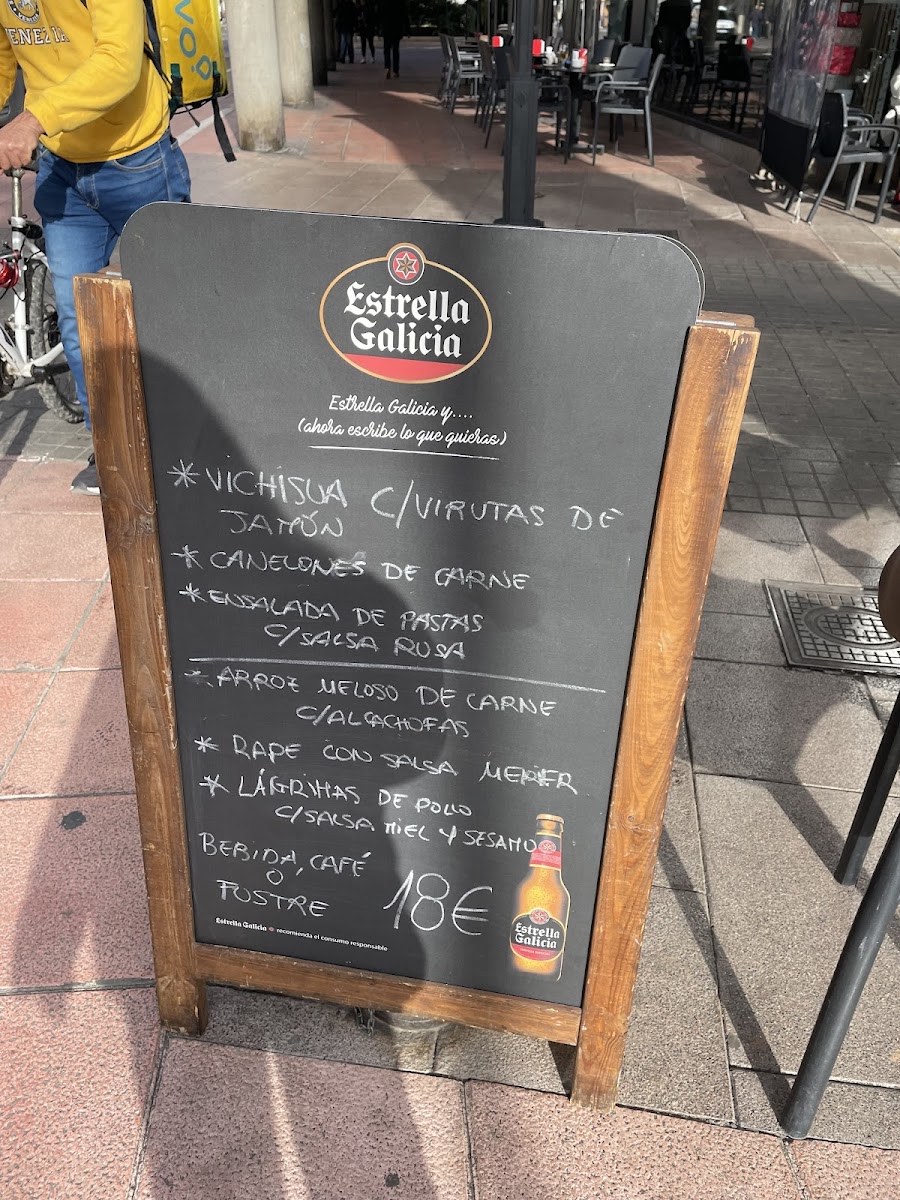 Estrella
Galicia
Estrella Galicia y....
(ahora escribe lo que quieras)
* VICHISUA C/VIRUTAS DE
JAMÓN
* CANELONES DE CARNE
* ENSALADA DE PASTAS
C/SALSA ROSA
* ARROZ MELOSO DE CARNE
C/ALCACHOFAS
* RAPE CON SALSA MERIER
* LÁGRIMAS DE POLLO
C/SALSA MIEL Y SESAMO
BEBIDA, CAFÉ
O
POSTRE 18€
Estrella
Galicia
Estrella Galicia recomienda el consumo responsable